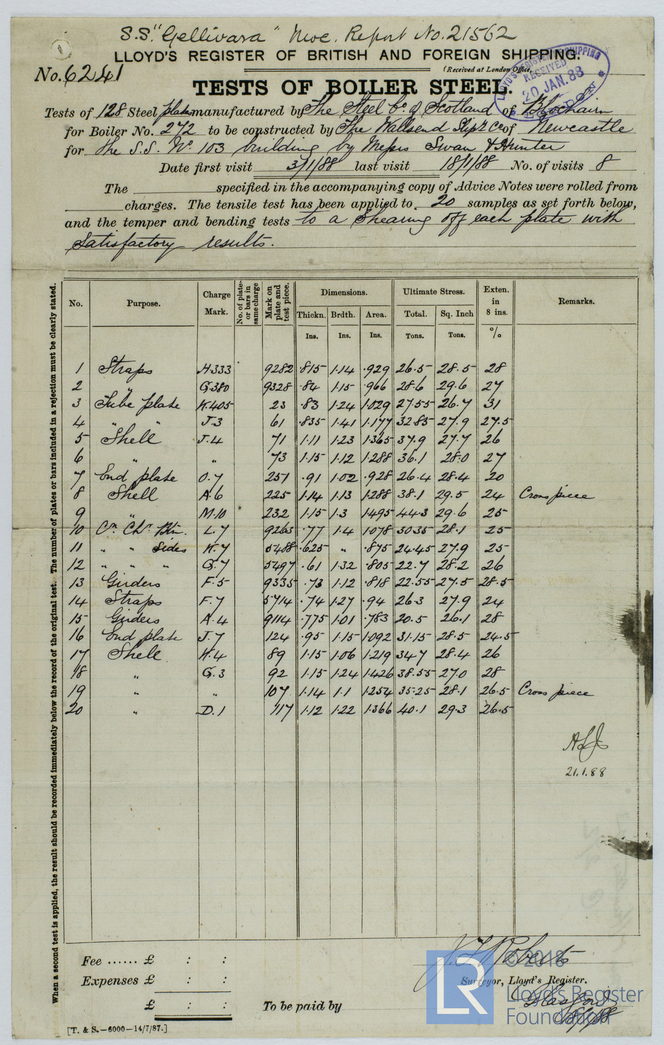 S.S. "Gellivara" Nwc. Report No. 21562
LLOYD'S REGISTER OF BRITISH AND FOREIGN SHIPPING.
No. 6241
(Received at London Office
RECEIVED
20 JAN. 88
TESTS OF BOILER STEEL.
Tests of 128 Steel plates manufactured by The Steel Co. of Scotland of Blochairn
for Boiler No. 272 to be constructed by The Wallsend Slipy Co. of Newcastle
for the S.S. No. 103 building by Messrs Swan & Hunter
Date first visit 3/1/88 last visit 18/1/88 No. of visits 8
The specified in the accompanying copy of Advice Notes were rolled from
charges. The tensile test has been applied to 20 samples as set forth below,
and the temper and bending tests to a shearing off each plate with
satisfactory results.
When a second test is applied, the result should be recorded immediately below the record of the original test. The number of plates or bars included in a rejection must be clearly stated.
No. Purpose. Charge Mark. No. of plates or bars in same charge Mark on plate and test piece. Dimensions. Ultimate Stress. Exten. in 8 ins. Remarks.
Thickn. Brdth. Area. Total. Sq. Inch
Ins. Ins. Ins. Tons. Tons. %
1 Straps H.333 9282 .815 1.14 .929 26.5 28.5 28
2 " G.380 9328 .84 1.15 .966 28.6 29.6 27
3 Tube plate K.405 23 .83 1.24 1.029 27.55 26.7 31
4 " " J.3 61 .835 1.41 1.177 32.85 27.9 27.5
5 Shell J.4 71 1.11 1.23 1.365 37.9 27.7 26
6 " " 73 1.15 1.12 1.288 36.1 28.0 27
7 End plate O.7 251 .91 1.02 .928 26.4 28.4 20
8 Shell A.6 225 1.14 1.13 1.288 38.1 29.5 24 Cross piece
9 " M.10 232 1.15 1.3 1.495 44.3 29.6 25
10 Cn. Chr. Btm. L.7 9265 .77 1.4 1.078 30.35 28.1 25
11 " " Sides K.7 5488 .625 " .875 24.45 27.9 25
12 " " " G.7 5497 .61 1.32 .805 22.7 28.2 26
13 Girders F.5 9335 .73 1.12 .818 22.55 27.5 28.5
14 Straps F.7 5714 .74 1.27 .94 26.3 27.9 24
15 Girders A.4 9114 .775 1.01 .783 20.5 26.1 28
16 End plate J.7 124 .95 1.15 1.092 31.15 28.5 24.5
17 Shell H.4 89 1.15 1.06 1.219 34.7 28.4 26
18 " G.3 92 1.15 1.24 1.426 38.55 27.0 28
19 " " 107 1.14 1.1 1.254 35.25 28.1 26.5 Cross piece
20 " D.1 117 1.12 1.22 1.366 40.1 29.3 26.5
21.1.88
Fee ...... £ : :
Expenses £ : :
£ : :
To be paid by
J. T. Roberts
Surveyor, Lloyd's Register.
Glasgow
[T. & S.—6000—14/7/87.]
LR
© 2018
Lloyd's Register
Foundation